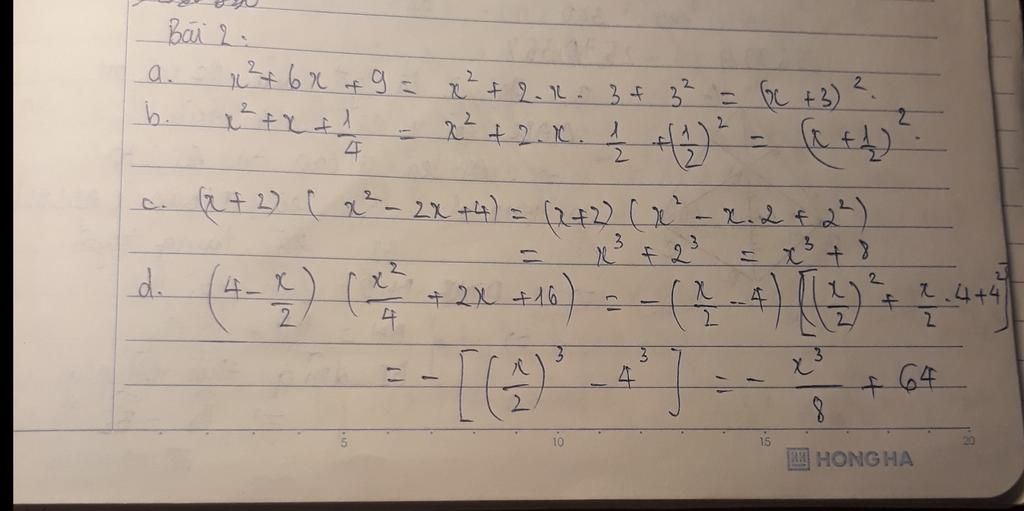 Bài 2:
a. x² + 6x + 9 = x² + 2.x.3 + 3² = (x + 3)².
b. x² + x + 1/4 = x² + 2.x.1/2 + (1/2)² = (x + 1/2)².
c. (x + 2) ( x² - 2x + 4) = (x + 2) (x² - x.2 + 2²)
= x³ + 2³ = x³ + 8
d. (4 - x/2) (x²/4 + 2x + 16) = - (x/2 - 4) [(x/2)² + x/2 . 4 + 4²]
= - [(x/2)³ - 4³] = - x³/8 + 64
5 10 15 20
HONG HA